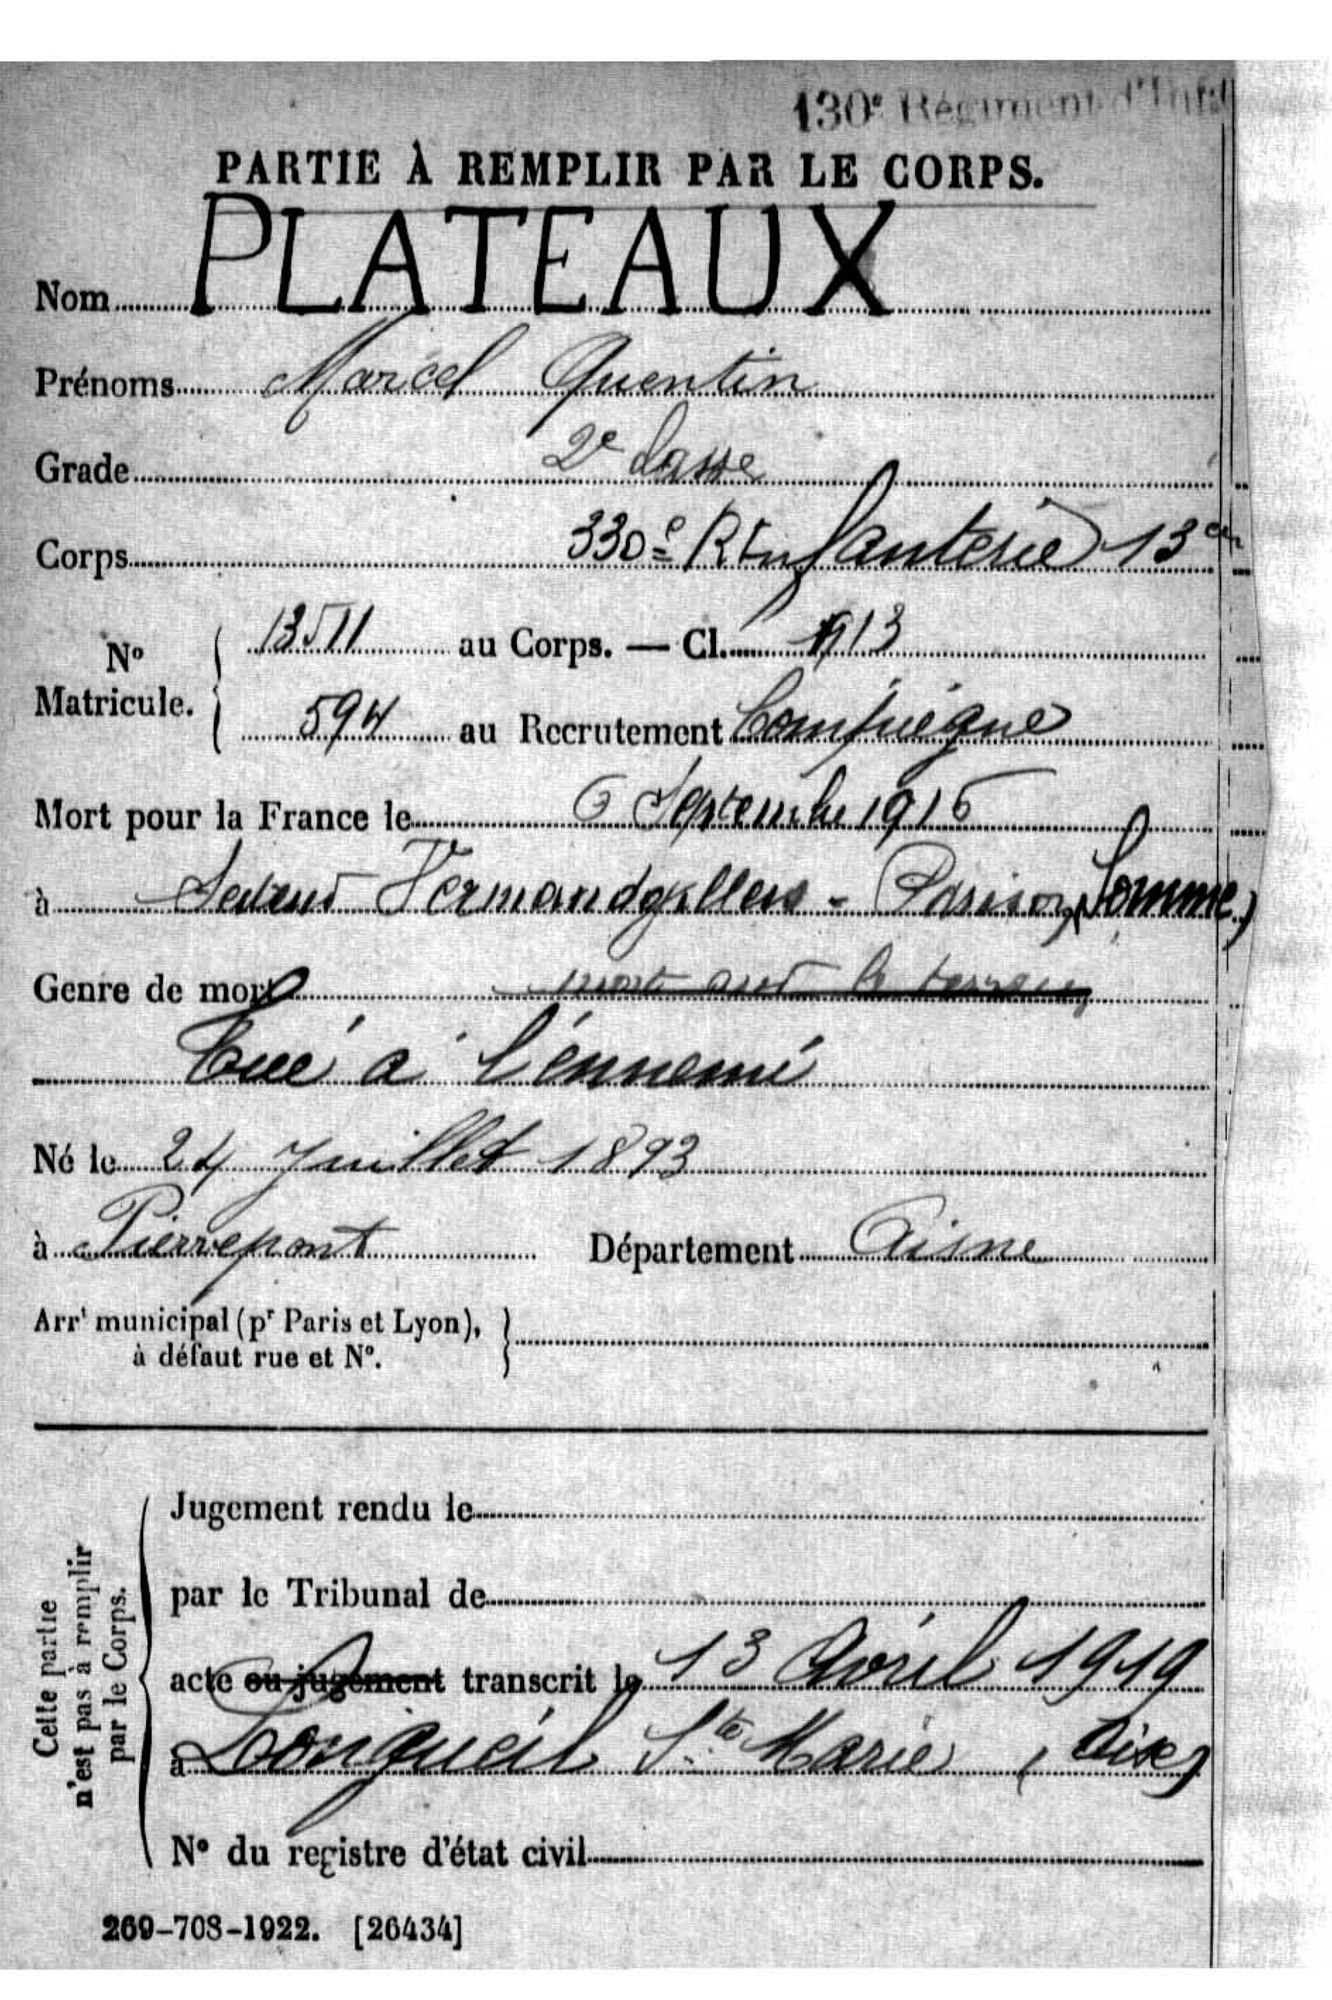 130e Régiment d'Inf
PARTIE À REMPLIR PAR LE CORPS.
Nom PLATEAUX
Prénoms Marcel Quentin
Grade 2e classe
Corps 330e R Infanterie 13e
No Matricule. 13511 au Corps. — Cl. 1913
594 au Recrutement Compiègne
Mort pour la France le 6 Septembre 1916
à Vermandovillers - (Somme)
Genre de mort mort sur le terrain
Tué à l'ennemi
Né le 24 Juillet 1893
à Pierrepont Département Aisne
Arrt municipal (pr Paris et Lyon),
à défaut rue et No.
Cette partie
n'est pas à remplir
par le Corps.
Jugement rendu le
par le Tribunal de
acte ou jugement transcrit le 13 Avril 1919
à Longueil Ste Marie (Oise)
No du registre d'état civil
269-708-1922. [26434]